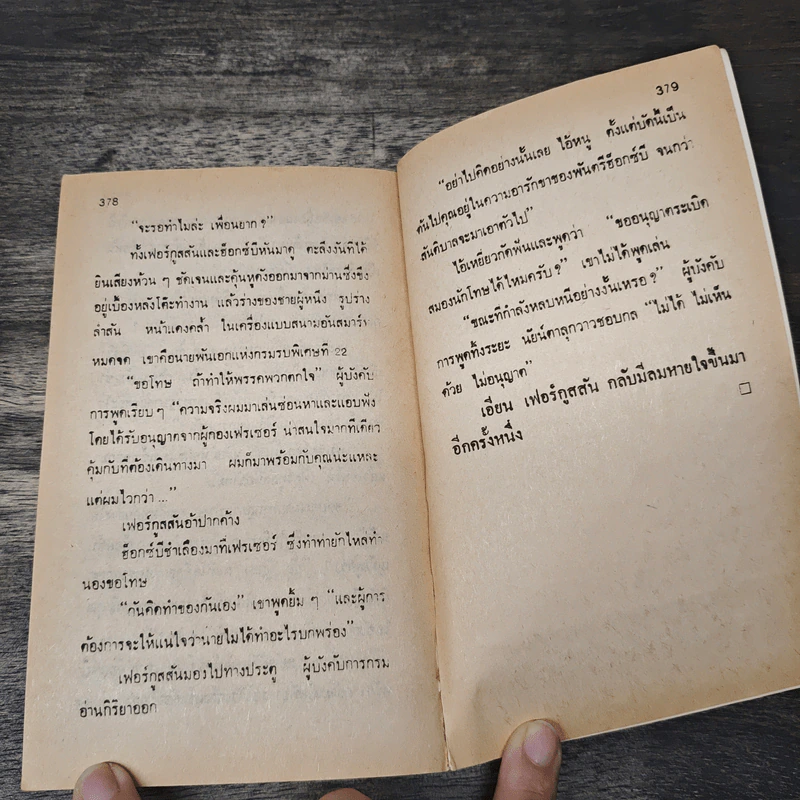 378
“จะรอทำไมล่ะ เพื่อนยาก ?”
ทั้งเฟอร์กูสสันและฮ็อกซ์บีหันมาดู ตะลึงงันที่ได้
ยินเสียงห้วน ๆ ชัดเจนและคุ้นหูดังออกมาจากม่านซึ่งขึง
อยู่เบื้องหลังโต๊ะทำงาน แล้วร่างของชายผู้หนึ่ง รูปร่าง
ล่ำสัน หน้าแดงคล้ำ ในเครื่องแบบสนามอันสมาร์ท
หมดจด เขาคือนายพันเอกแห่งกรมรบพิเศษที่ 22
“ขอโทษ ถ้าทำให้พรรคพวกตกใจ” ผู้บังคับ
การพูดเรียบ ๆ “ความจริงผมมาเล่นซ่อนหาและแอบฟัง
โดยได้รับอนุญาตจากผู้กองเฟรเซอร์ น่าสนใจมากทีเดียว
คุ้มกับที่ต้องเดินทางมา ผมก็มาพร้อมกับคุณน่ะแหละ
แต่ผมไวกว่า ...”
เฟอร์กูสสันอ้าปากค้าง
ฮ็อกซ์บีชำเลืองมาที่เฟรเซอร์ ซึ่งทำท่ายักไหล่ทำ
นองขอโทษ
“กันคิดทำของกันเอง” เขาพูดยิ้ม ๆ “และผู้การ
ต้องการจะให้แน่ใจว่านายไม่ได้ทำอะไรบกพร่อง”
เฟอร์กูสสันมองไปทางประตู ผู้บังคับการกรม
อ่านกิริยาออก
379
“อย่าไปคิดอย่างนั้นเลย ไอ้หนู ตั้งแต่บัดนี้เป็น
ต้นไปคุณอยู่ในความอารักขาของพันตรีฮ็อกซ์บี จนกว่า
สันติบาลจะมาเอาตัวไป”
ไอ้เหยี่ยวกัดฟันและพูดว่า “ขออนุญาตระเบิด
สมองนักโทษได้ไหมครับ ?” เขาไม่ได้พูดเล่น
“ขณะที่กำลังหลบหนีอย่างงั้นเหรอ ?” ผู้บังคับ
การพูดทิ้งระยะ นัยน์ตาลุกวาวชอบกล “ไม่ได้ ไม่เห็น
ด้วย ไม่อนุญาต”
เอียน เฟอร์กูสสัน กลับมีลมหายใจขึ้นมา
อีกครั้งหนึ่ง